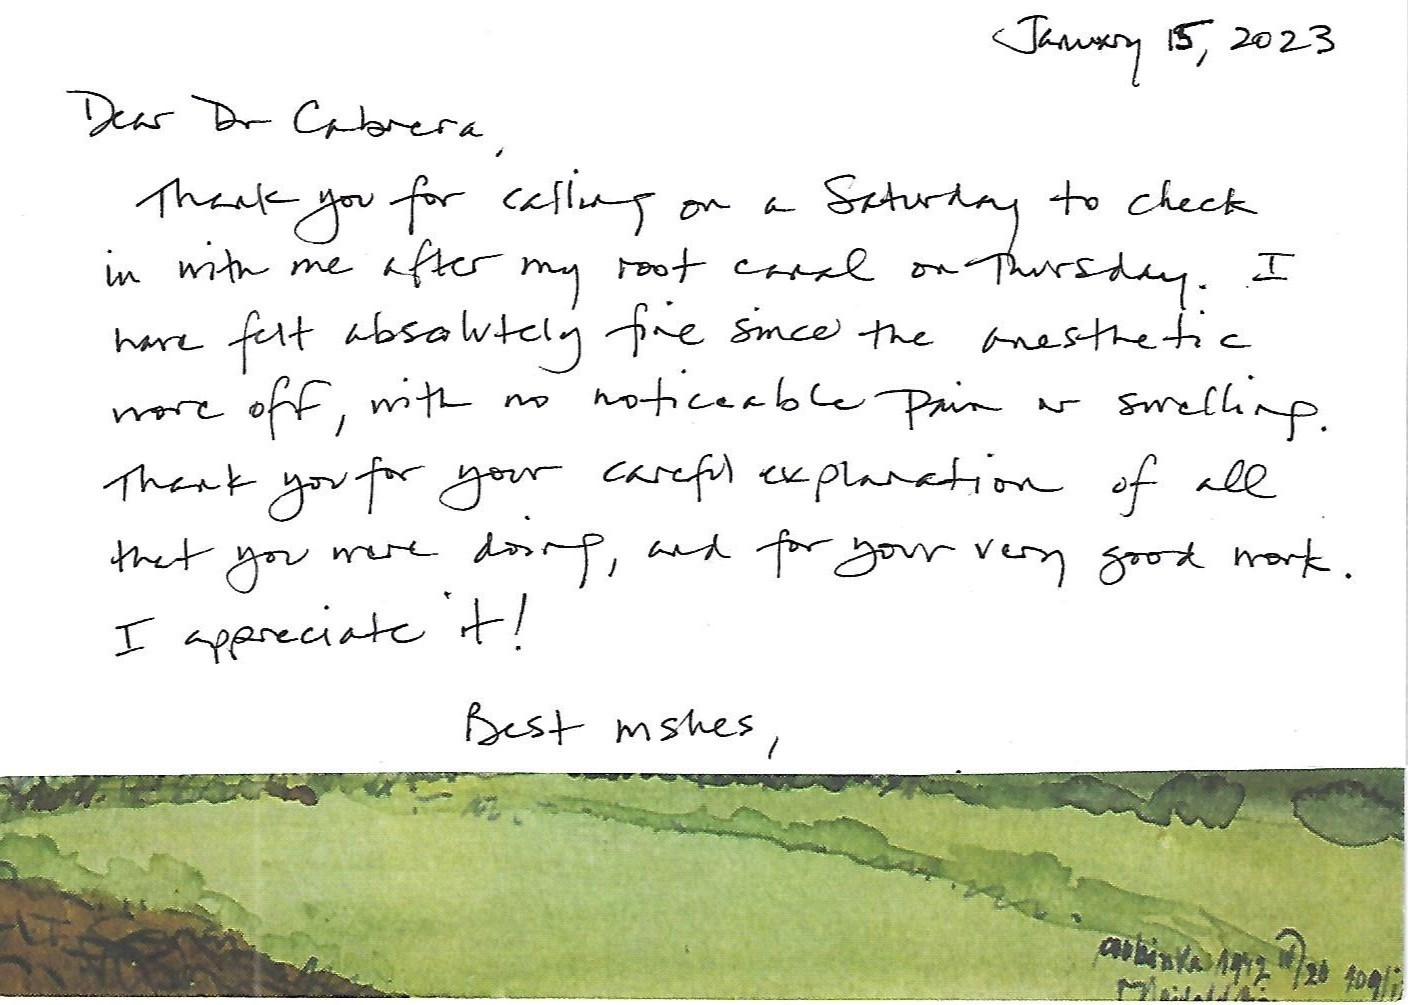 January 15, 2023
Dear Dr Cabrera,
Thank you for calling on a Saturday to check
in with me after my root canal on Thursday. I
have felt absolutely fine since the anesthetic
wore off, with no noticeable pain or swelling.
Thank you for your careful explanation of all
that you were doing, and for your very good work.
I appreciate it!
Best wishes,
1942